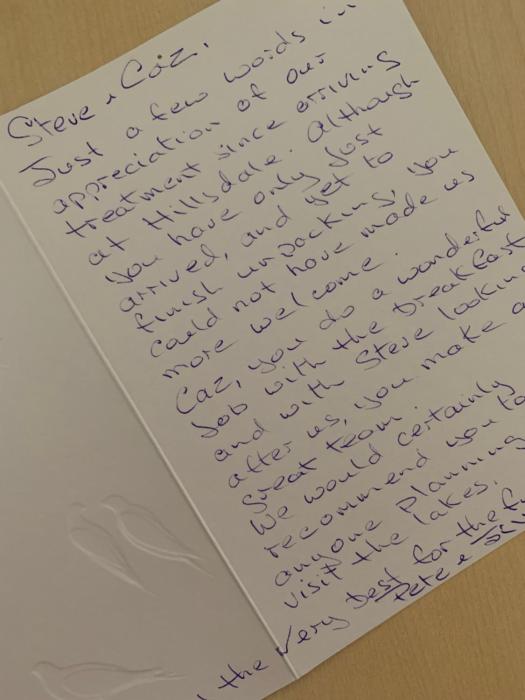 Steve & Caz,
Just a few words in
appreciation of our
treatment since arriving
at Hillsdale. Although
you have only just
arrived, and yet to
finish unpacking, you
could not have made us
more welcome.
Caz, you do a wonderful
job with the breakfast
and with Steve looking
after us, you make a
great team.
We would certainly
recommend you to
anyone planning
visit the lakes.
the very best for the
Pete &